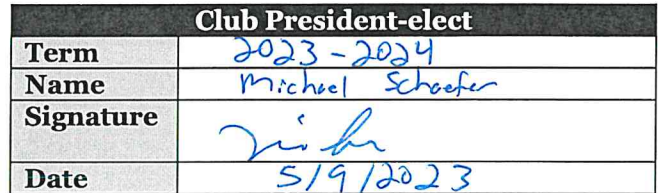 Club President-elect
Term 2023-2024
Name Michael Schaefer
Signature
Date 5/9/2023